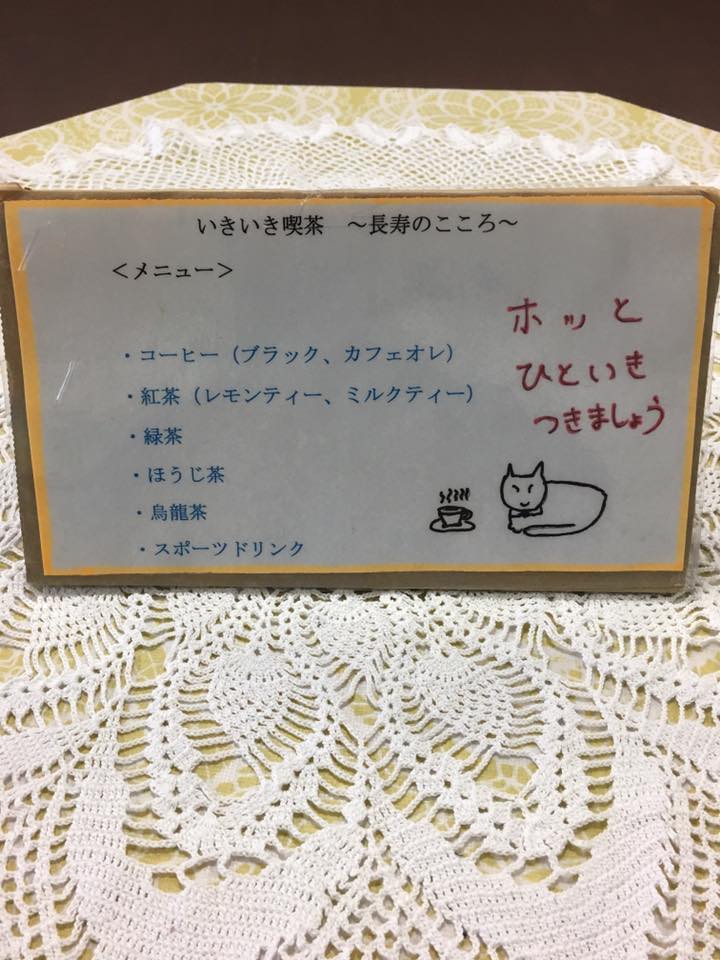 いきいき喫茶　～長寿のこころ～
＜メニュー＞
・コーヒー（ブラック、カフェオレ）
・紅茶（レモンティー、ミルクティー）
・緑茶
・ほうじ茶
・烏龍茶
・スポーツドリンク
ホッと
ひといき
つきましょう